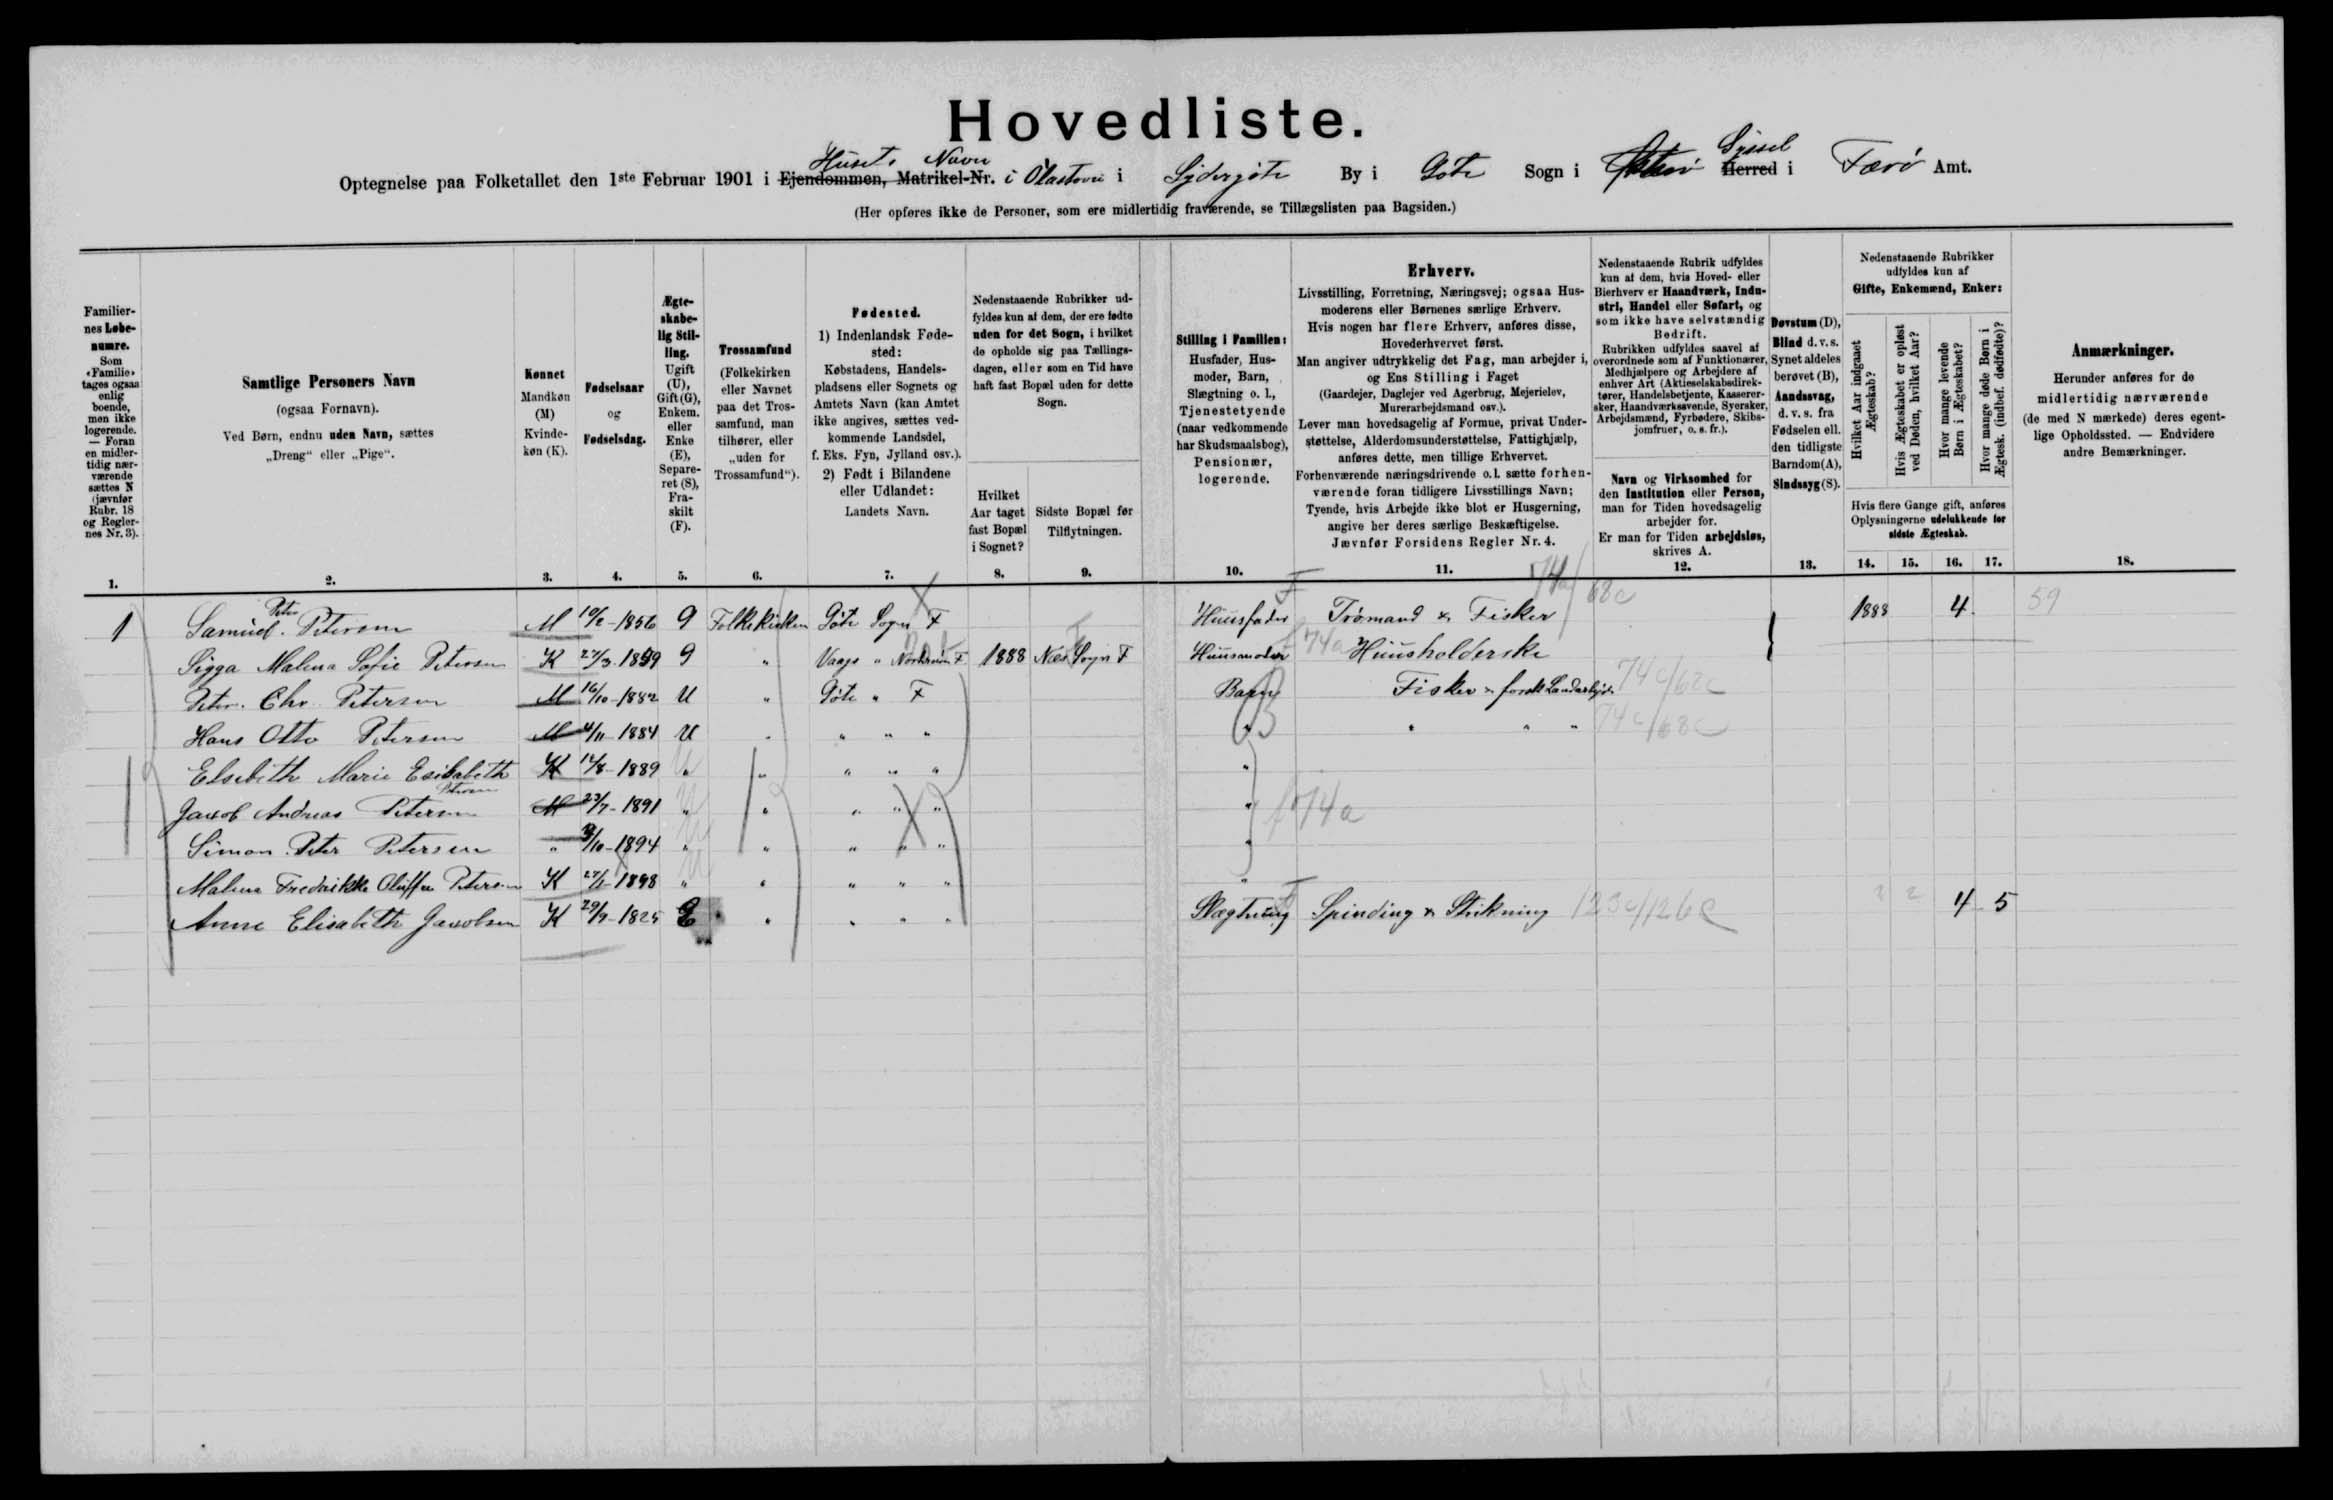 Hovedliste.
Husets Navn Syssel
Optegnelse paa Folketallet den 1ste Februar 1901 i Ejendommen, Matrikel-Nr. i Olastovu i Sydergöte By i Göte Sogn i Østerö Herred i Færö Amt.
(Her opføres ikke de Personer, som ere midlertidig fraværende, se Tillægslisten paa Bagsiden.)
Familiernes Løbenumre.
Som «Familie» tages ogsaa enlig boende, men ikke logerende. — Foran en midlertidig nærværende sættes N (jævnfør Rubr. 18 og Reglernes Nr. 3).
1.
Samtlige Personers Navn
(ogsaa Fornavn).
Ved Børn, endnu uden Navn, sættes
„Dreng“ eller „Pige“.
2.
Kønnet
Mandkøn (M)
Kvindekøn (K).
3.
Fødselsaar
og
Fødselsdag.
4.
Ægteskabelig Stilling.
Ugift (U), Gift (G), Enkem. eller Enke (E), Separeret (S), Fraskilt (F).
5.
Trossamfund
(Folkekirken eller Navnet paa det Trossamfund, man tilhører, eller „uden for Trossamfund“).
6.
Fødested.
1) Indenlandsk Fødested:
Købstadens, Handelspladsens eller Sognets og Amtets Navn (kan Amtet ikke angives, sættes vedkommende Landsdel, f. Eks. Fyn, Jylland osv.).
2) Født i Bilandene eller Udlandet:
Landets Navn.
7.
Nedenstaaende Rubrikker udfyldes kun af dem, der ere fødte uden for det Sogn, i hvilket de opholde sig paa Tællingsdagen, eller som en Tid have haft fast Bopæl uden for dette Sogn.
Hvilket Aar taget fast Bopæl i Sognet?
8.
Sidste Bopæl før Tilflytningen.
9.
Stilling i Familien:
Husfader, Husmoder, Barn, Slægtning o. l., Tjenestetyende (naar vedkommende har Skudsmaalsbog), Pensionær, logerende.
10.
Erhverv.
Livsstilling, Forretning, Næringsvej; ogsaa Husmoderens eller Børnenes særlige Erhverv.
Hvis nogen har flere Erhverv, anføres disse, Hovederhvervet først.
Man angiver udtrykkelig det Fag, man arbejder i, og Ens Stilling i Faget
(Gaardejer, Daglejer ved Agerbrug, Mejerielev, Murerarbejdsmand osv.).
Lever man hovedsagelig af Formue, privat Understøttelse, Alderdomsunderstøttelse, Fattighjælp, anføres dette, men tillige Erhvervet.
Forhenværende næringsdrivende o. l. sætte forhenværende foran tidligere Livsstillings Navn;
Tyende, hvis Arbejde ikke blot er Husgerning, angive her deres særlige Beskæftigelse.
Jævnfør Forsidens Regler Nr. 4.
11.
Nedenstaaende Rubrik udfyldes kun af dem, hvis Hoved- eller Bierhverv er Haandværk, Industri, Handel eller Søfart, og som ikke have selvstændig Bedrift.
Rubrikken udfyldes saavel af overordnede som af Funktionærer, Medhjælpere og Arbejdere af enhver Art (Aktieselskabsdirektører, Handelsbetjente, Kasserersker, Haandværkssvende, Syersker, Arbejdsmænd, Fyrbødere, Skibsjomfruer, o. s. fr.).
Navn og Virksomhed for den Institution eller Person, man for Tiden hovedsagelig arbejder for.
Er man for Tiden arbejdsløs, skrives A.
12.
Døvstum (D), Blind d. v. s. Synet aldeles berøvet (B), Aandssvag, d. v. s. fra Fødselen ell. den tidligste Barndom (A), Sindssyg (S).
13.
Nedenstaaende Rubrikker udfyldes kun af
Gifte, Enkemænd, Enker:
Hvilket Aar indgaaet Ægteskab?
Hvis Ægteskabet er opløst ved Døden, hvilket Aar?
Hvor mange levende Børn i Ægteskabet?
Hvor mange døde Børn i Ægtesk. (indbef. dødfødte)?
Hvis flere Gange gift, anføres Oplysningerne udelukkende for sidste Ægteskab.
14. 15. 16. 17.
Anmærkninger.
Herunder anføres for de midlertidig nærværende (de med N mærkede) deres egentlige Opholdssted. — Endvidere andre Bemærkninger.
18.
1 Samuel Peter Petersen M 1856 G Folkekirken Göte Sogn F Huusfader Trömand & Fisker 74a/68c 1888 4 59
Sigga Malena Sofie Petersen K 1859 G " Vaags " Norderö F 1888 Næs Sogn F Huusmoder 74a Huusholderske
Peter Chr. Petersen M 16/10-1882 U " Göte " F Barn Fisker & forsk Landarbejde 74c/68c
Hans Otto Petersen M 4/11-1884 U " " " " " " " " 74c/68c
Elsebeth Marie Esibabeth Petersen K 14/8-1889 " " " " " "
Jacob Andreas Petersen M 23/7-1891 " " " " " " 74a
Simon Peter Petersen " 9/10-1894 " " " " " "
Malena Fredrikke Oluffa Petersen K 1898 " " " " " "
Anne Elisabeth Jacobsen K 29/9-1825 E " " " " Slægtning Spinding & Strikning 123c/126c 2 2 4 5